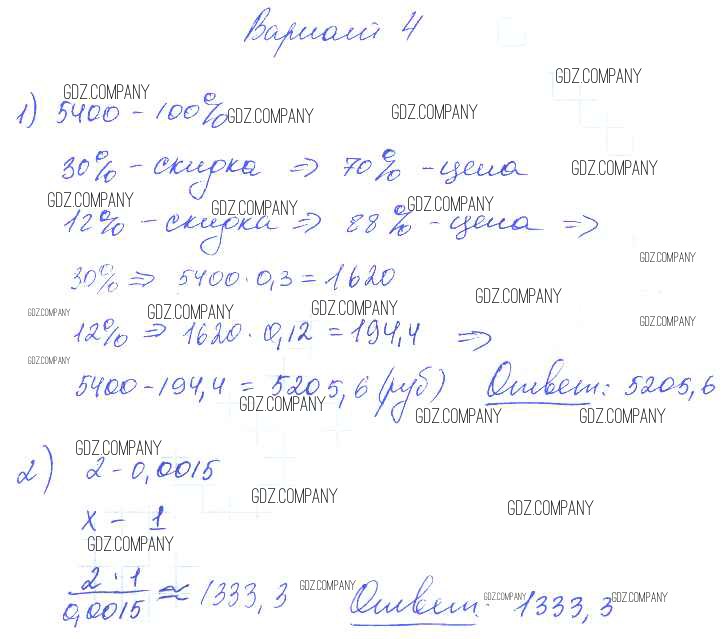 Вариант 4
GDZ.COMPANY
GDZ.COMPANY
1) 5400 - 100% GDZ.COMPANY GDZ.COMPANY
30% - скидка ⇒ 70% - цена GDZ.COMPANY
GDZ.COMPANY GDZ.COMPANY GDZ.COMPANY
12% - скидка ⇒ 88% - цена ⇒
GDZ.COMPANY
30% ⇒ 5400 · 0,3 = 1620
GDZ.COMPANY
GDZ.COMPANY GDZ.COMPANY GDZ.COMPANY GDZ.COMPANY
12% ⇒ 1620 · 0,12 = 194,4 ⇒
GDZ.COMPANY
5400 - 194,4 = 5205,6 (руб) Ответ: 5205,6
GDZ.COMPANY GDZ.COMPANY GDZ.COMPANY
GDZ.COMPANY
2) 2 - 0,0015
GDZ.COMPANY GDZ.COMPANY
x - 1
GDZ.COMPANY
2 · 1 / 0,0015 ≈ 1333,3 GDZ.COMPANY Ответ: GDZ.COMPANY 1333,3 GDZ.COMPANY